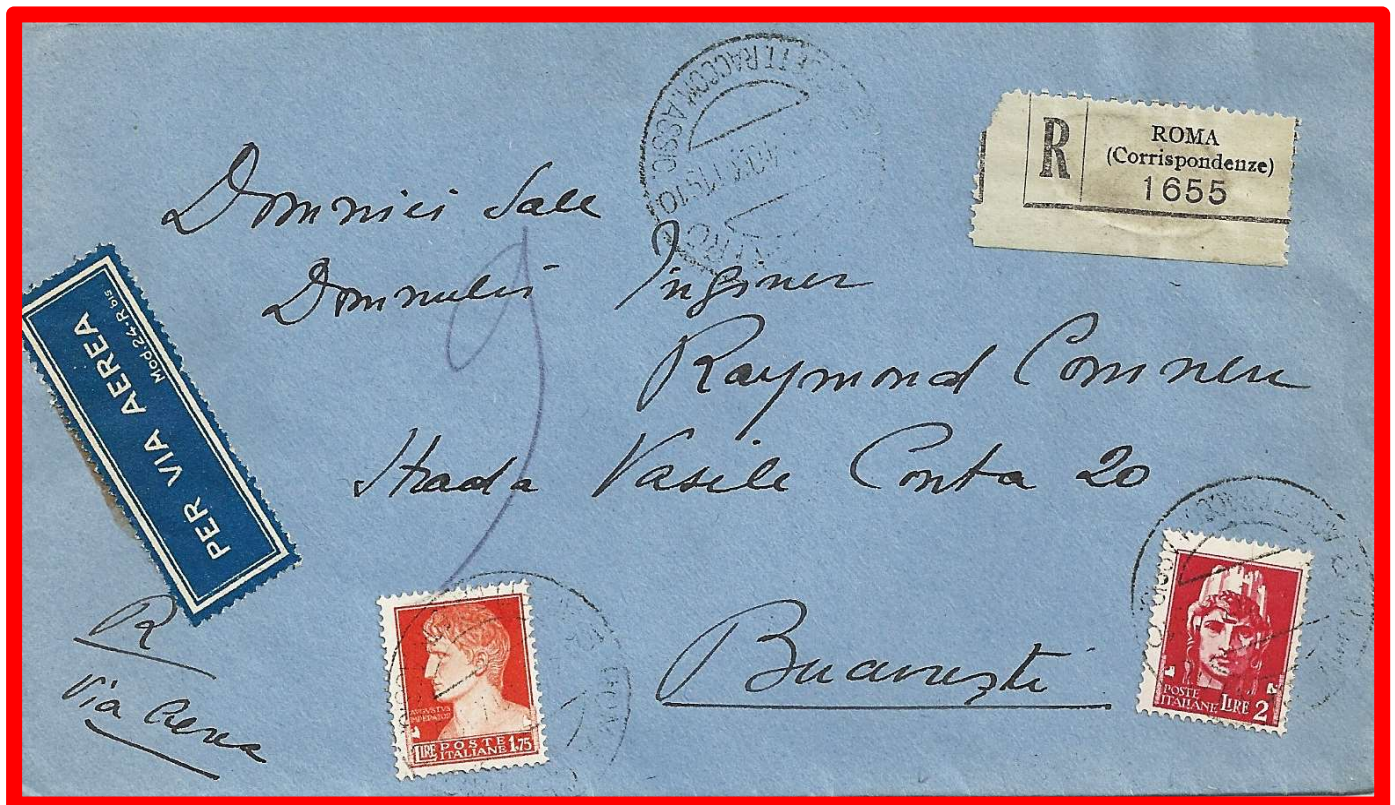 R ROMA
(Corrispondenze)
1655
Domniei Sale
Domnului Inginer
Raymond Comnen
Strada Vasile Conta 20
București
PER VIA AEREA
Mod. 24-R bis
R
Via Aerea
RACCOM. ASSIC
AVGVSTVS
IMPERATOR
LIRE POSTE ITALIANE 1.75
POSTE
ITALIANE LIRE 2